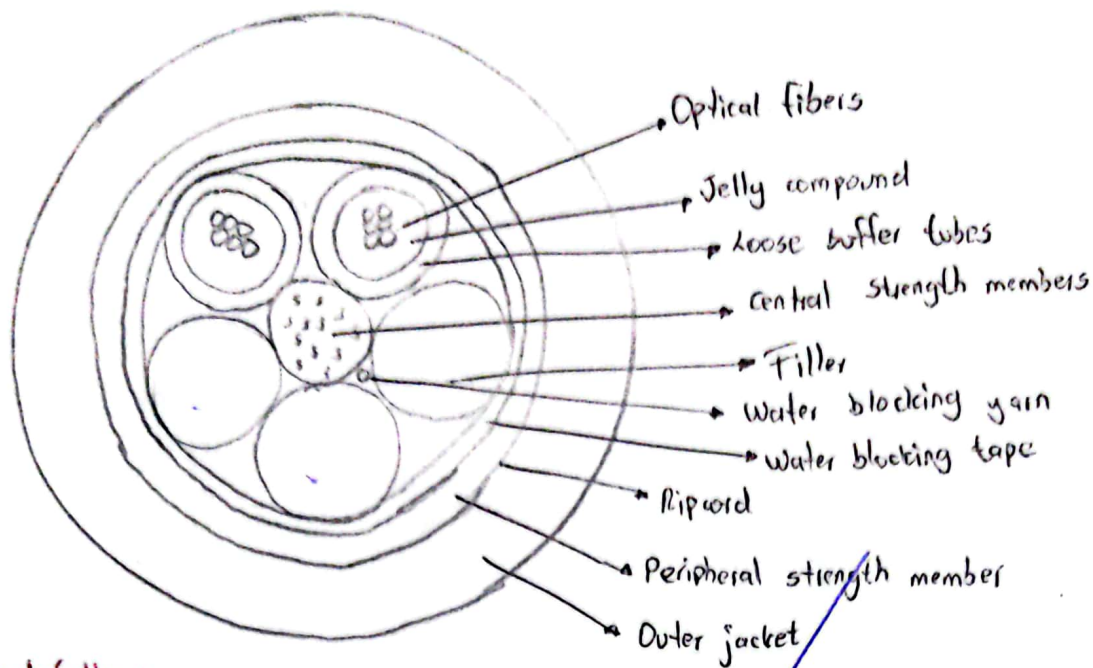 Optical fibers
Jelly compound
Loose buffer tubes
Central strength members
Filler
Water blocking yarn
Water blocking tape
Ripcord
Peripheral strength member
Outer jacket